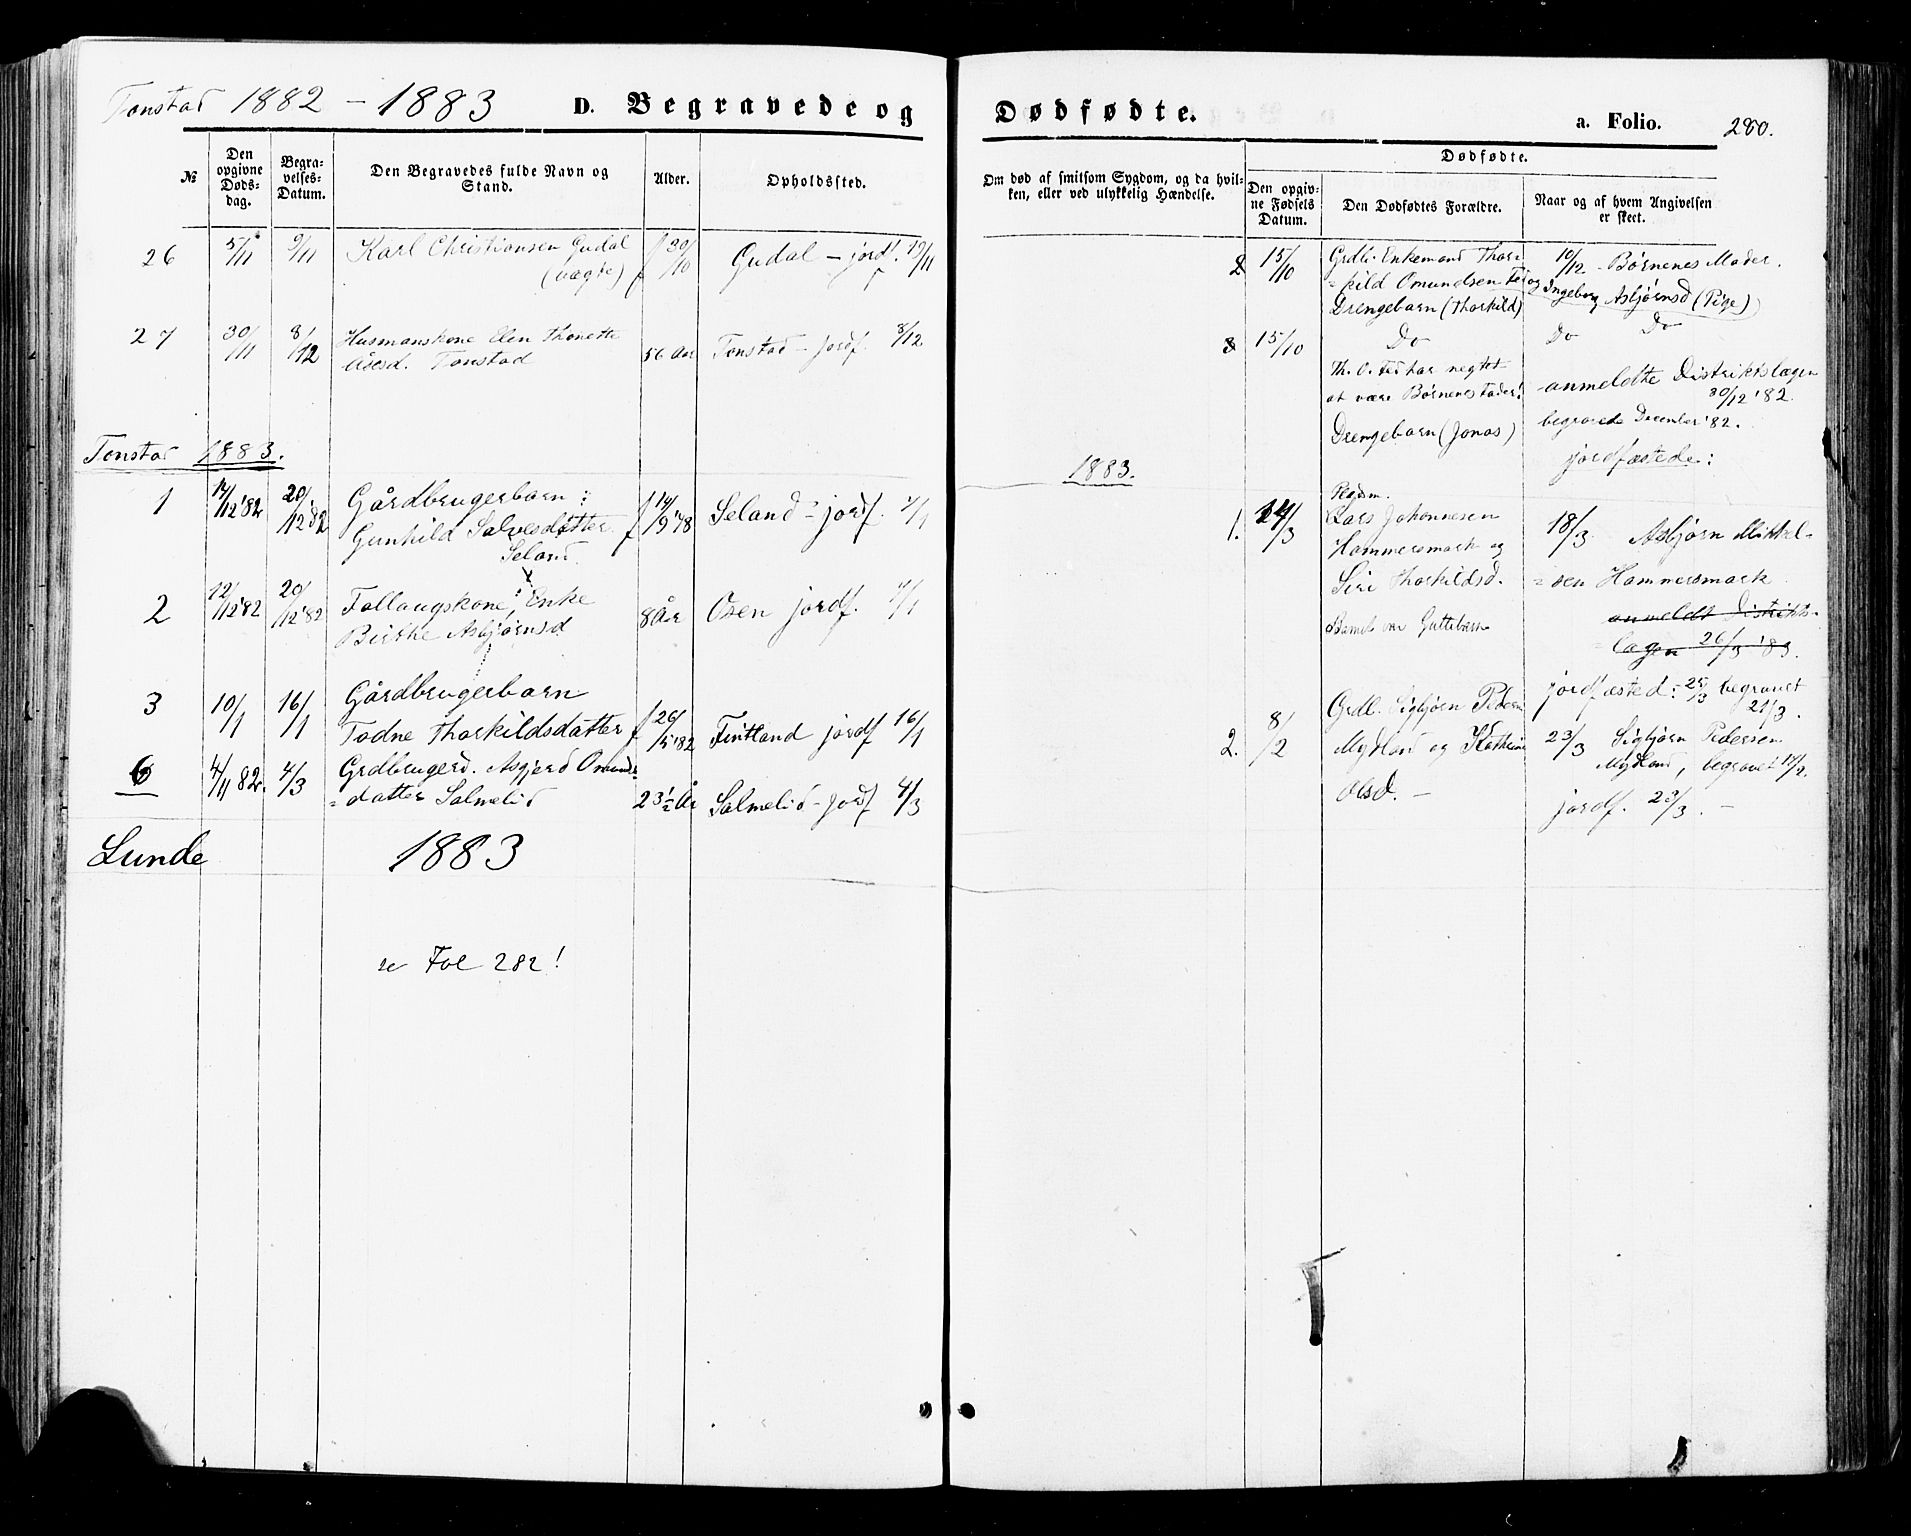 Tonstad 1882 - 1883 D. Begravede og
№
Den opgivne Døds-dag.
Begra-velses-Datum.
Den Begravedes fulde Navn og Stand.
Alder.
Opholdssted.
26 5/11 9/11 Karl Christiansen Gudal f 30/10 Gudal - jordf. 19/11
(uægte)
27 30/11 8/12 Husmanskone Elen Thonette
Åsesd. Tonstad 56 Aar Tonstad - jordf. 8/12
Tonstad 1883.
1 14/12 '82 20/12 '82 Gårdbrugerbarn: f 14/9 '78 Seland - jordf. 4/1
Gunhild Salvesdatter
Seland
2 12/12 '82 20/12 '82 Enke
Birthe Asbjørnsd 8 Aar Osen jordf. 4/1
3 10/1 16/1 Gårdbrugerbarn
Todne Thorkildsdatter f 26/5 '82 Fintland jordf 16/1
6 4/11 82 4/3 Grdbrugerd. Asgjerd Omunds=
=datter Salmelid 23 1/2 År Salmelid - jordf 4/3
Lunde 1883
se Fol 282!
Dødfødte. a. Folio. 280.
Om død af smitsom Sygdom, og da hvil-
ken, eller ved ulykkelig Hændelse.
Dødfødte.
Den opgiv-
ne Fødsels
Datum.
Den Dødfødtes Forældre.
Naar og af hvem Angivelsen
er skeet.
2 15/10 Grdbr. Enkemand Thor=
=kild Omundsen Fed og
Drengebarn (Thorkild)
10/12 - Børnenes Moder.
Ingeborg Asbjørnsd (Pige)
3 15/10 Do
Do Do
Th. O. Fed har negtet
at være Børnenes Fader!
Drengebarn (Jonas)
anmeldte Distriktslægen
30/12 '82.
begravede December '82.
jordfæstede:
1883.
1. 14/3
Lars Johannesen
Hammersmark og
Siri Thorkildsd.
Barnet var Guttebarn
18/3 Asbjørn Mikkel=
=sen Hammersmark
anmeldt Distrikts=
=lægen 26/3 '83.
jordfæsted: 25/3 begravet
21/3.
2. 8/2
Grdb. Sigbjørn Pedersen
Mydland og Kathrine
Olsd. -
23/3 Sigbjørn Pedersen
Mydland, begravet 14/2.
jordf. 23/3. -